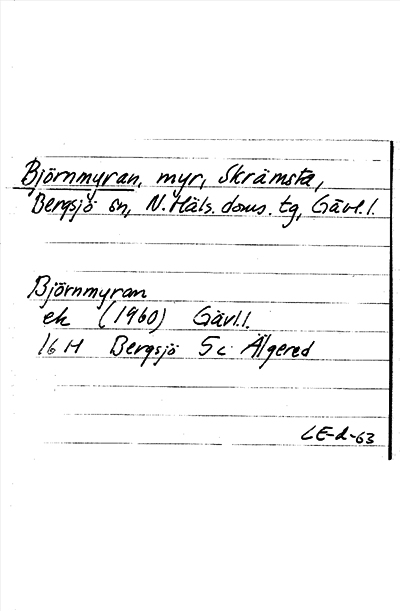 Björnmyran, myr, Skrämsta,
Bergsjö sn, N. Häls. doms. tg, Gävl. l.
Björnmyran
ek (1960) Gävl. l.
16 H Bergsjö 5 c Älgered
LE-d-63